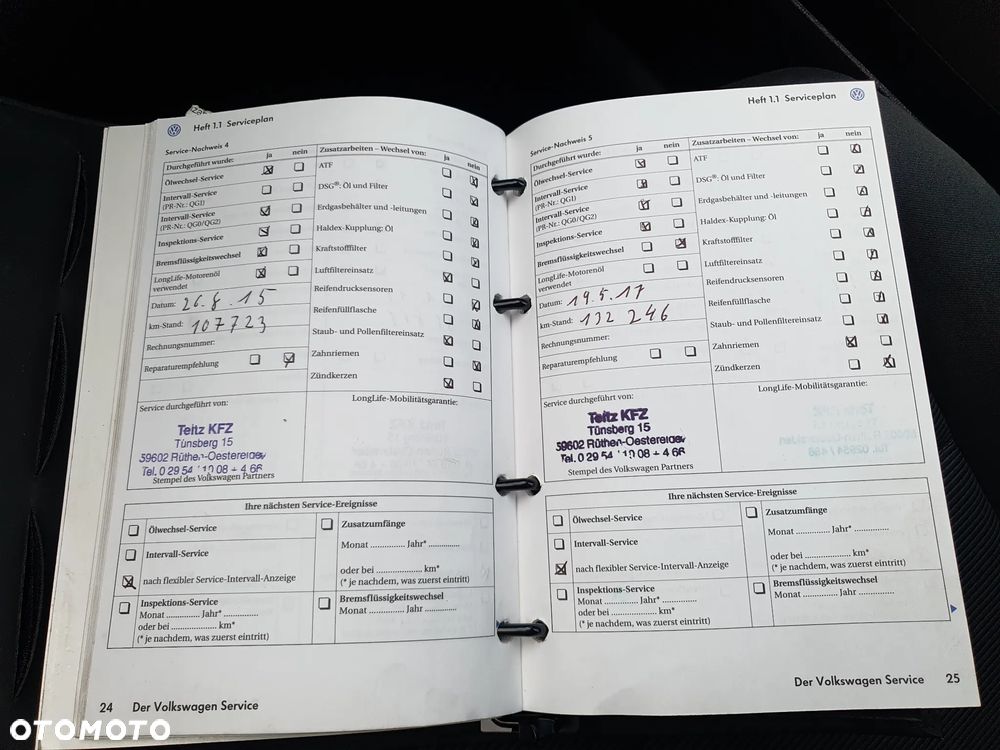 Heft 1.1 Serviceplan
Service-Nachweis 4
Durchgeführt wurde: ja nein
Ölwechsel-Service
Intervall-Service
(PR-Nr.: QG1)
Intervall-Service
(PR-Nr.: QG0/QG2)
Inspektions-Service
Bremsflüssigkeitswechsel
LongLife-Motorenöl
verwendet
Datum: 26.8.15
km-Stand: 107723
Rechnungsnummer:
Reparaturempfehlung
Zusatzarbeiten – Wechsel von: ja nein
ATF
DSG®: Öl und Filter
Erdgasbehälter und -leitungen
Haldex-Kupplung: Öl
Kraftstofffilter
Luftfiltereinsatz
Reifendrucksensoren
Reifenfüllflasche
Staub- und Pollenfiltereinsatz
Zahnriemen
Zündkerzen
Service durchgeführt von:
Teitz KFZ
Tünsberg 15
59602 Rüthen-Oestereiden
Tel. 0 29 54 / 10 08 + 4 66
Stempel des Volkswagen Partners
LongLife-Mobilitätsgarantie:
Ihre nächsten Service-Ereignisse
Ölwechsel-Service
Intervall-Service
nach flexibler Service-Intervall-Anzeige
Inspektions-Service
Monat .............. Jahr* ..............
oder bei .................... km*
(* je nachdem, was zuerst eintritt)
Zusatzumfänge
Monat .............. Jahr* ..............
oder bei .................... km*
(* je nachdem, was zuerst eintritt)
Bremsflüssigkeitswechsel
Monat .............. Jahr ..............
24 Der Volkswagen Service
Heft 1.1 Serviceplan
Service-Nachweis 5
Durchgeführt wurde: ja nein
Ölwechsel-Service
Intervall-Service
(PR-Nr.: QG1)
Intervall-Service
(PR-Nr.: QG0/QG2)
Inspektions-Service
Bremsflüssigkeitswechsel
LongLife-Motorenöl
verwendet
Datum: 19.5.17
km-Stand: 132 246
Rechnungsnummer:
Reparaturempfehlung
Zusatzarbeiten – Wechsel von: ja nein
ATF
DSG®: Öl und Filter
Erdgasbehälter und -leitungen
Haldex-Kupplung: Öl
Kraftstofffilter
Luftfiltereinsatz
Reifendrucksensoren
Reifenfüllflasche
Staub- und Pollenfiltereinsatz
Zahnriemen
Zündkerzen
Service durchgeführt von:
Teitz KFZ
Tünsberg 15
59602 Rüthen-Oestereiden
Tel. 0 29 54 / 10 08 + 4 66
Stempel des Volkswagen Partners
LongLife-Mobilitätsgarantie:
Ihre nächsten Service-Ereignisse
Ölwechsel-Service
Intervall-Service
nach flexibler Service-Intervall-Anzeige
Inspektions-Service
Monat .............. Jahr* ..............
oder bei .................... km*
(* je nachdem, was zuerst eintritt)
Zusatzumfänge
Monat .............. Jahr* ..............
oder bei .................... km*
(* je nachdem, was zuerst eintritt)
Bremsflüssigkeitswechsel
Monat .............. Jahr ..............
Der Volkswagen Service 25
OTOMOTO